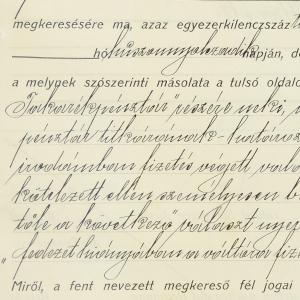 megkeresésére ma, azaz egyezerkilenczszáz
hó huszonnyolczadik napján, d
a melynek szószerinti másolata a tulsó oldalo
Takarékpénztár" részére neki,
pénztár titkárának
irodámban fizetés végett
kötelezett ellen személyesen
tőle a következő választ nyer
"fedezet hiányjában a váltóra fize
Miről, a fent nevezett megkereső fél jogai